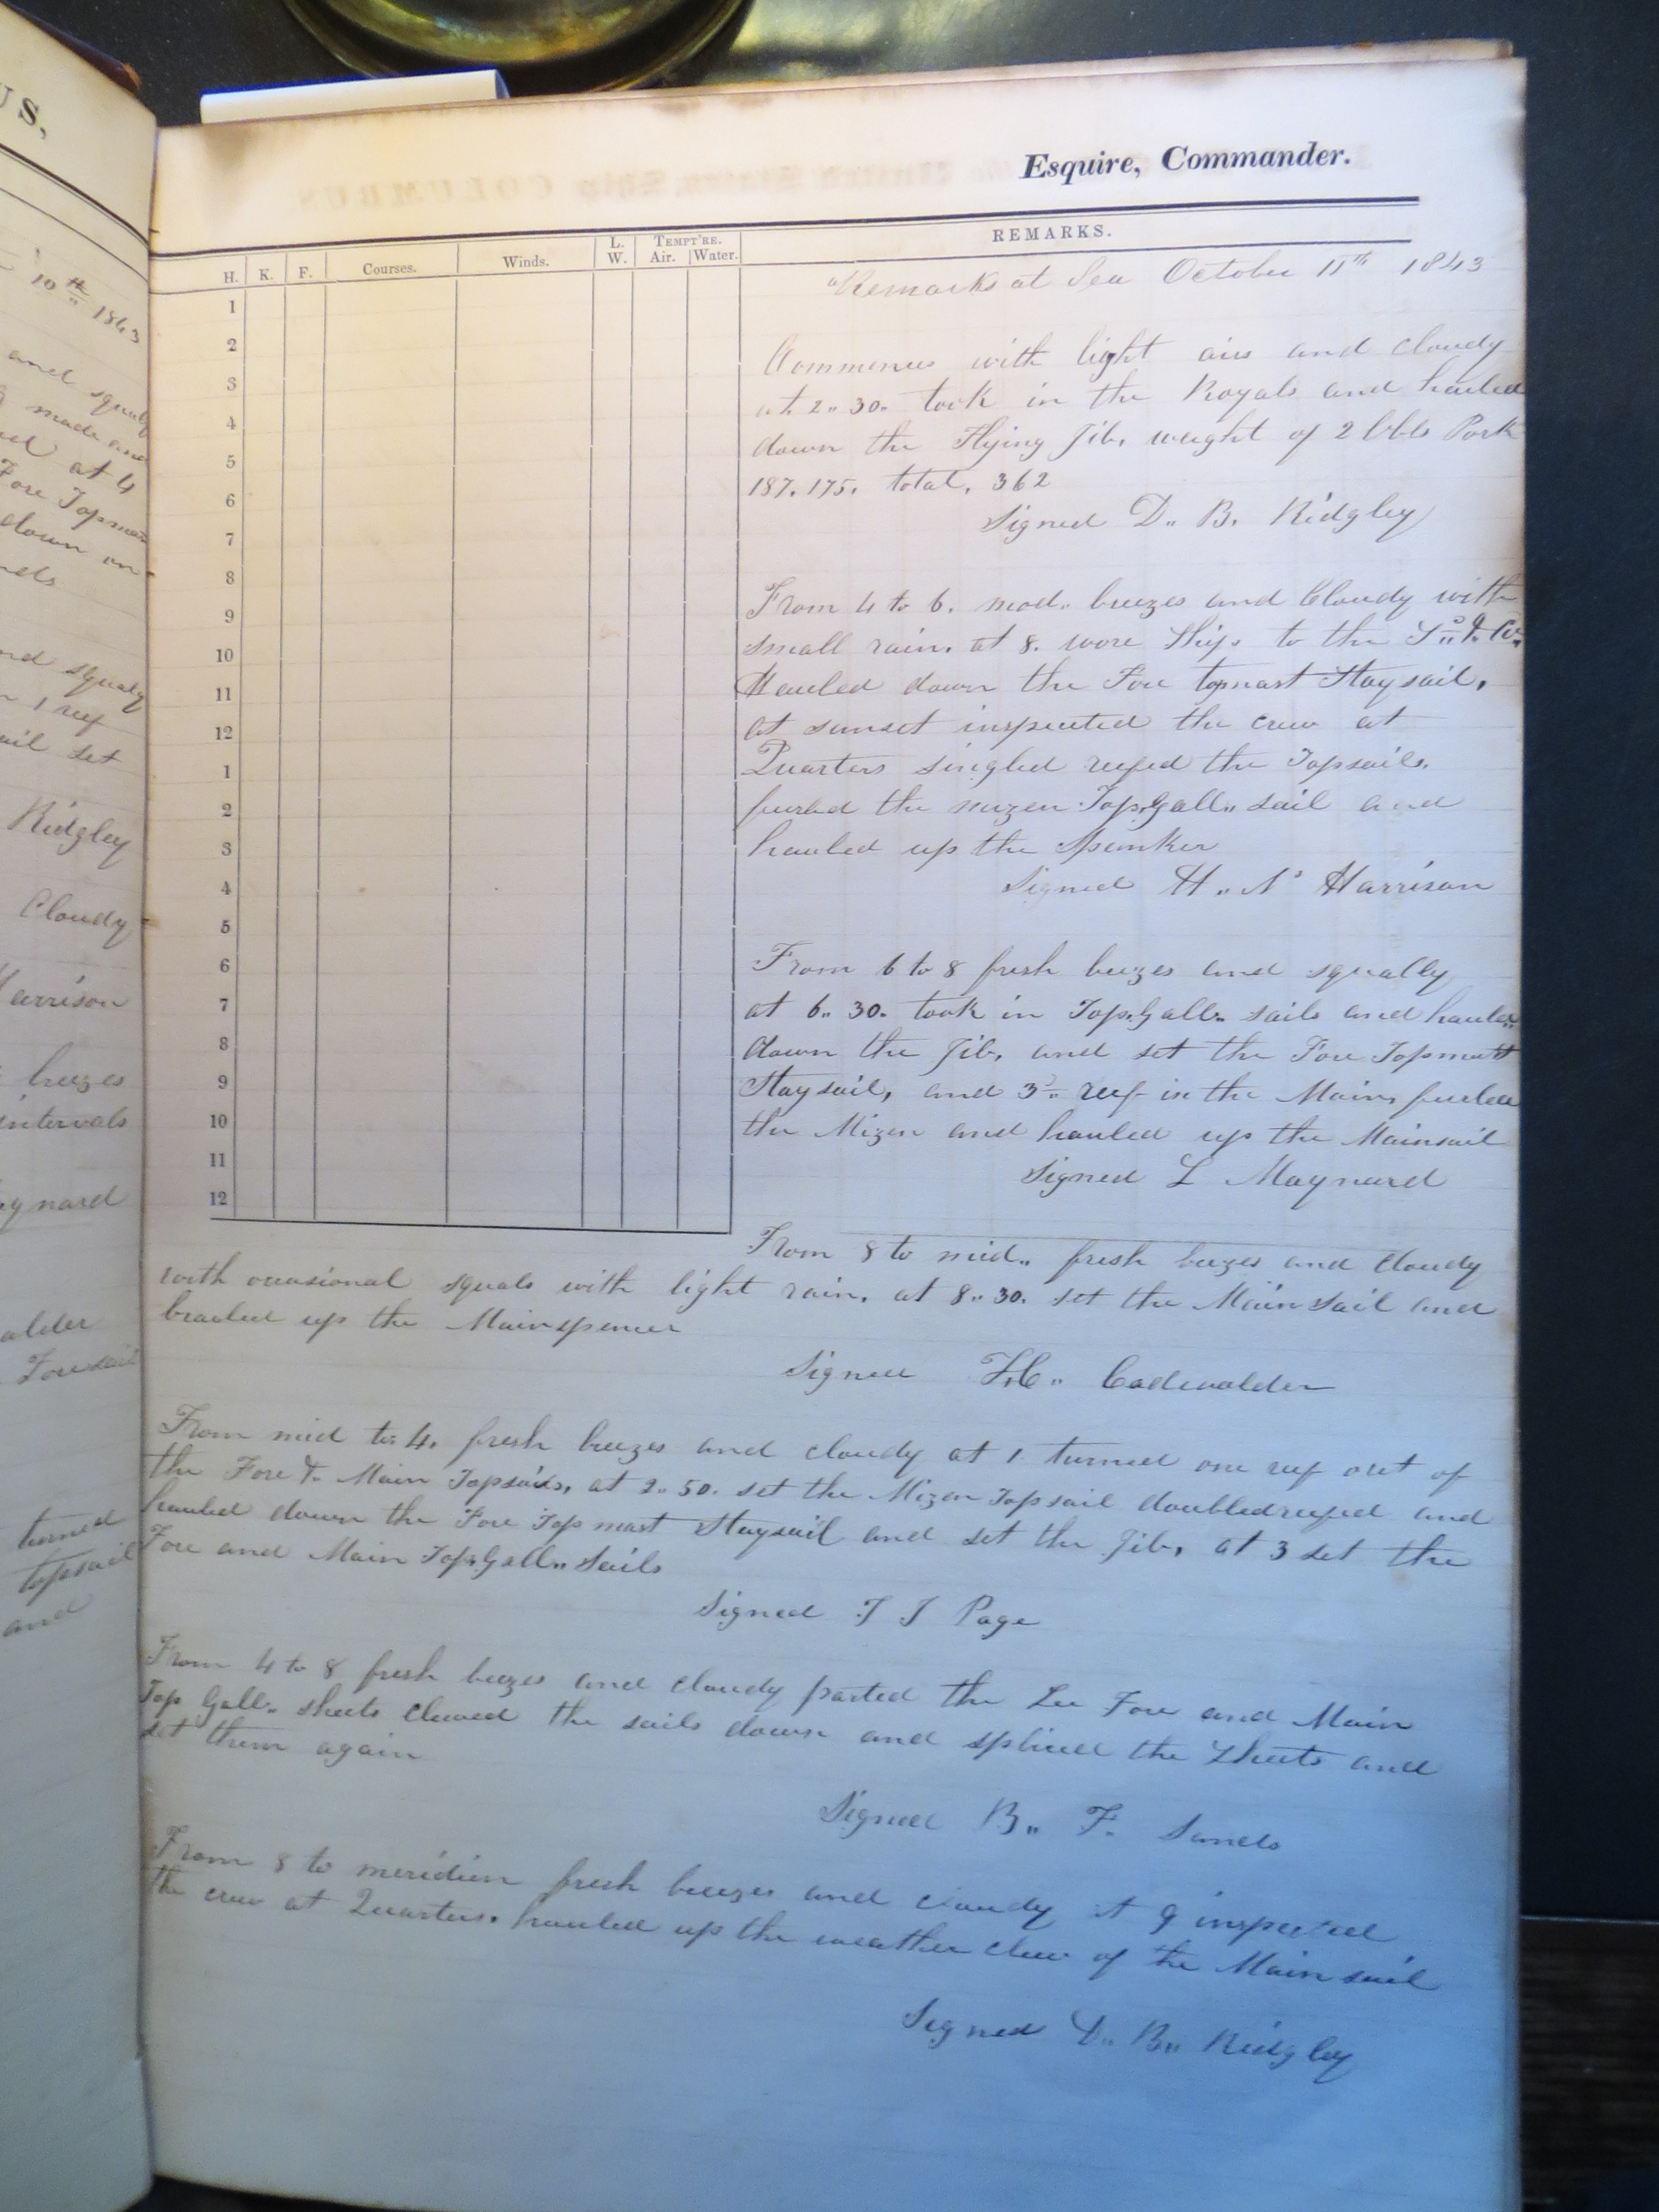 US,
10th 1843
and squally
made and
at 4
Fore Topmast
down
and squaly
1 reef
sail set
Ridgley
Cloudy
Harrison
breezes
intervals
Maynard
Foresail
turned
topsail
and
Esquire, Commander.
H. K. F. Courses. Winds. L. W. TEMPT'RE. Air. Water. REMARKS.
1
2
3
4
5
6
7
8
9
10
11
12
1
2
3
4
5
6
7
8
9
10
11
12
"Remarks at Sea October 11th 1843
Commences with light airs and cloudy
at 2.. 30.. took in the Royals and hauled
down the Flying Jib, weight of 2 bbls Pork
187. 175. total. 362
Signed D.. B. Ridgley
From 4 to 6. mod.. breezes and Cloudy with
small rain. at 8. wore ship to the
Hauled down the Fore topmast Staysail.
at sunset inspected the crew at
Quarters singled reefed the Topsails.
furled the mizen Top.Gall.. sail and
hauled up the Spanker
Signed H.. N Harrison
From 6 to 8 fresh breezes and squally
at 6.. 30. took in Top.Gall.. sails and hauled
down the Jib, and set the Fore Topmast
Staysail, and 3d reef in the Main, furled
the Mizen and hauled up the Mainsail
Signed L Maynard
From 8 to mid.. fresh breezes and cloudy
with occasional squals with light rain. at 8.. 30. set the Main Sail and
brailed up the Mainspencer
Signed Cadwalder
From mid to 4. fresh breezes and cloudy at 1 turned one reef out of
the Fore & Main Topsails, at 2.. 50. set the Mizen Topsail doubledreefed and
hauled down the Fore Top mast Staysail and set the Jib, at 3 set the
Fore and Main Top.Gall.. Sails
Signed T J Page
From 4 to 8 fresh breezes and cloudy parted the Lee Fore and Main
Top Gall.. sheets clewed the sails down and spliced the sheets and
set them again
Signed B.. F. Sands
From 8 to meridien fresh breezes and cloudy at 9 inspected
the crew at Quarters. hauled up the weather clew of the Main sail
Signed D.. B.. Ridgley